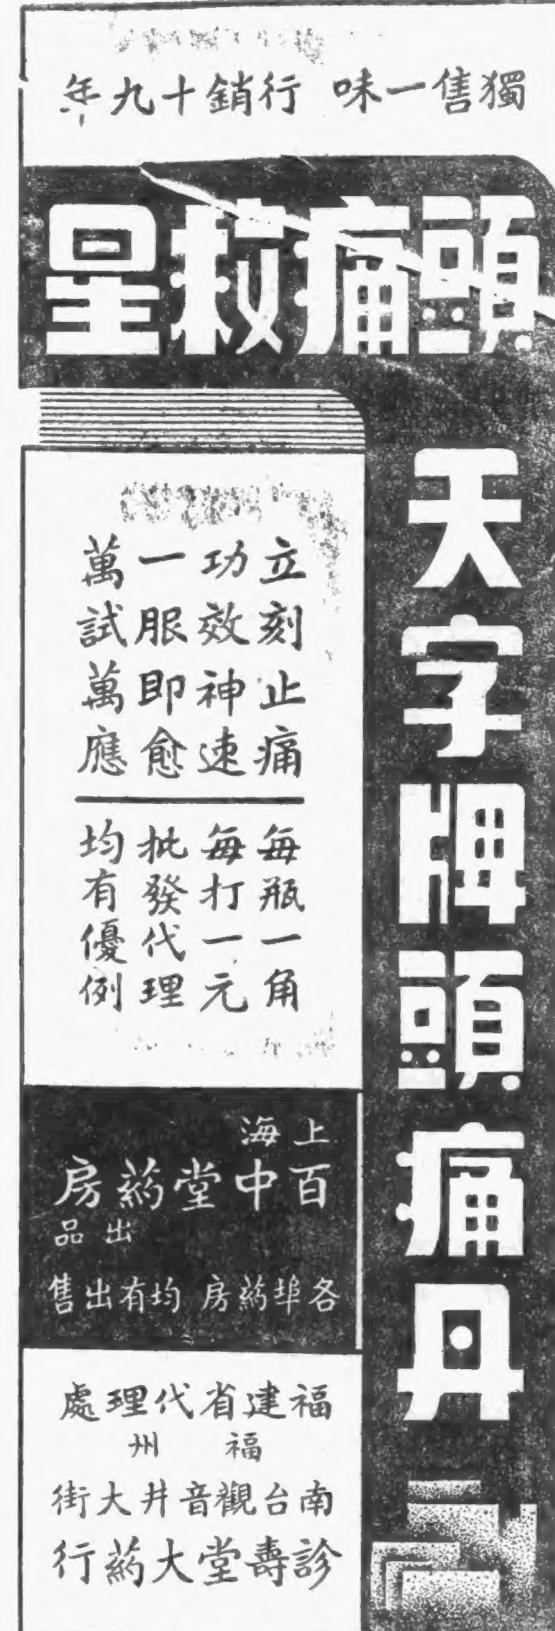 獨售一味 行銷十九年
頭痛救星
天字牌頭痛丹
立刻止痛
功效神速
一服即愈
萬試萬應
每瓶一角
每打一元
批發代理
均有優例
上海
百中堂葯房
出品
各埠葯房 均有出售
福建省代理處
福州
南台觀音井大街
診壽堂大葯行